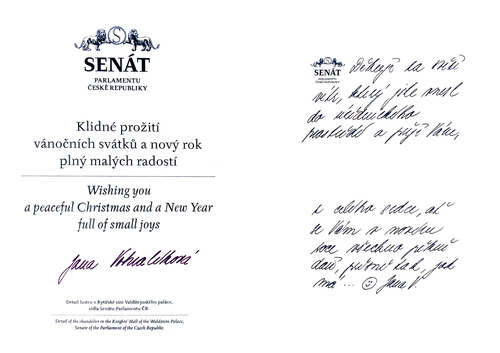 SENÁT
PARLAMENTU
ČESKÉ REPUBLIKY
Klidné prožití
vánočních svátků a nový rok
plný malých radostí
Wishing you
a peaceful Christmas and a New Year
full of small joys
Jana
Detail lustru v Rytířské síni Valdštejnského paláce,
sídla Senátu Parlamentu ČR.
Detail of the chandelier in the Knights' Hall of the Waldstein Palace,
Senate of the Parliament of the Czech Republic.
SENÁT
PARLAMENTU
ČESKÉ REPUBLIKY
Děkuji za
který jste
do
a přeji Vám,
z celého srdce, ať
se Vám v novém
roce všechno pěkně
daří, tak jak
má... ☺ Jana V.